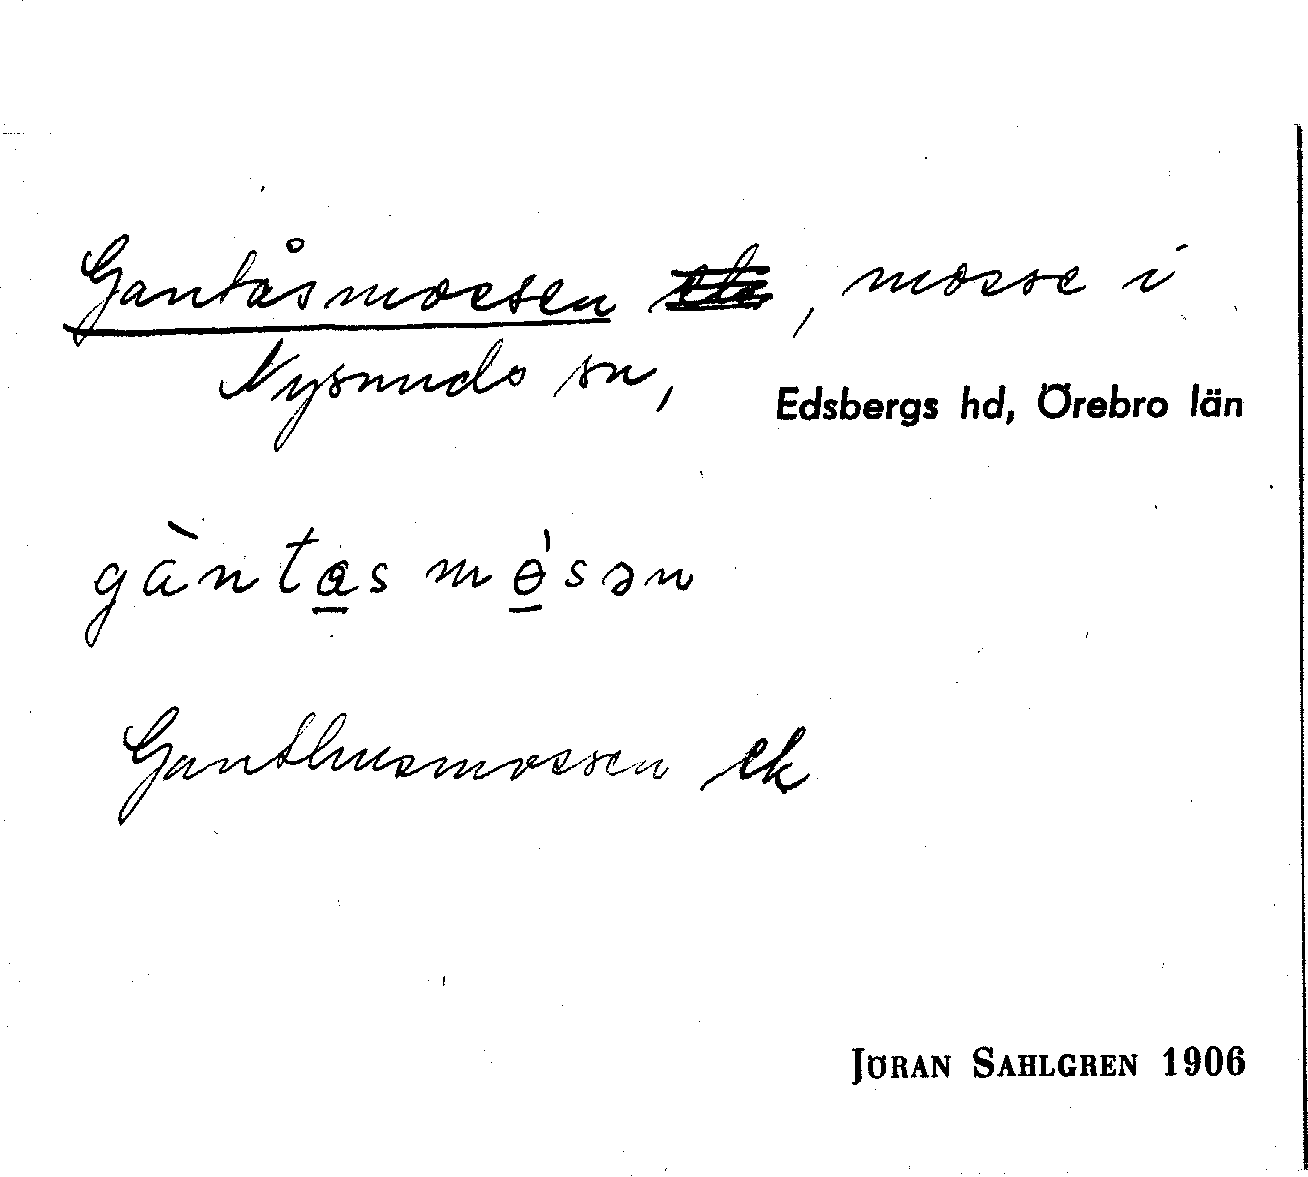 Gantåsmossen, mosse i
Nysunds sn,
Edsbergs hd, Örebro län
gàntas mósən
Ganthusmossen ek
JÖRAN SAHLGREN 1906